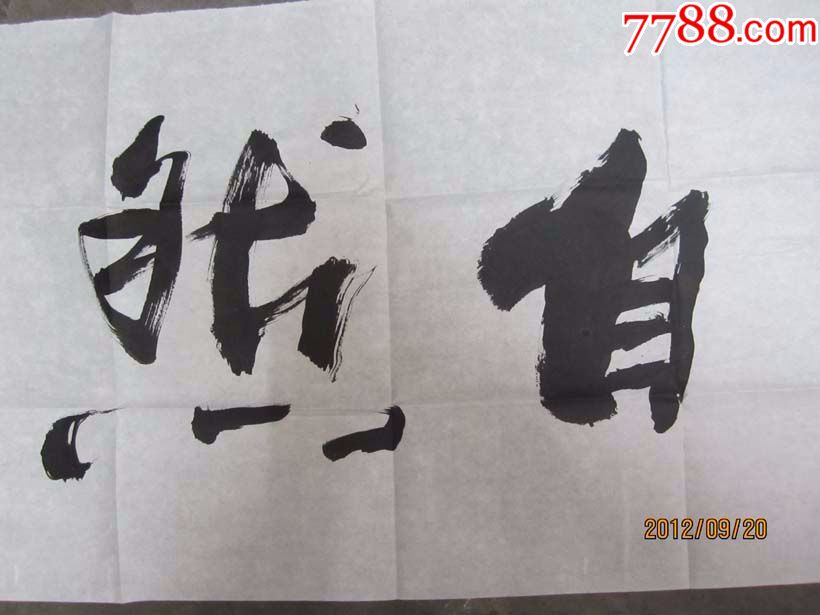 7788.com
自然
2012/09/20